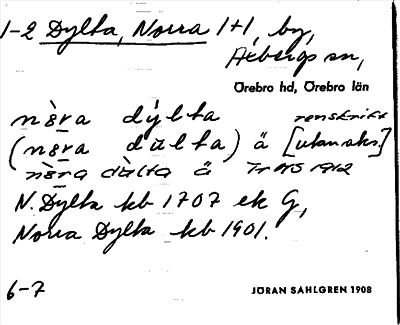 1-2 Dylta, Norra 1+1, by,
Axbergs sn,
Örebro hd, Örebro län
nòra dýlta renskrift
(nòra dulta) ä [utan aks.]
nòra dùlta ä 1912
N. Dylta kb 1707 ek G,
Norra Dylta kb 1901.
6-7 JÖRAN SAHLGREN 1908